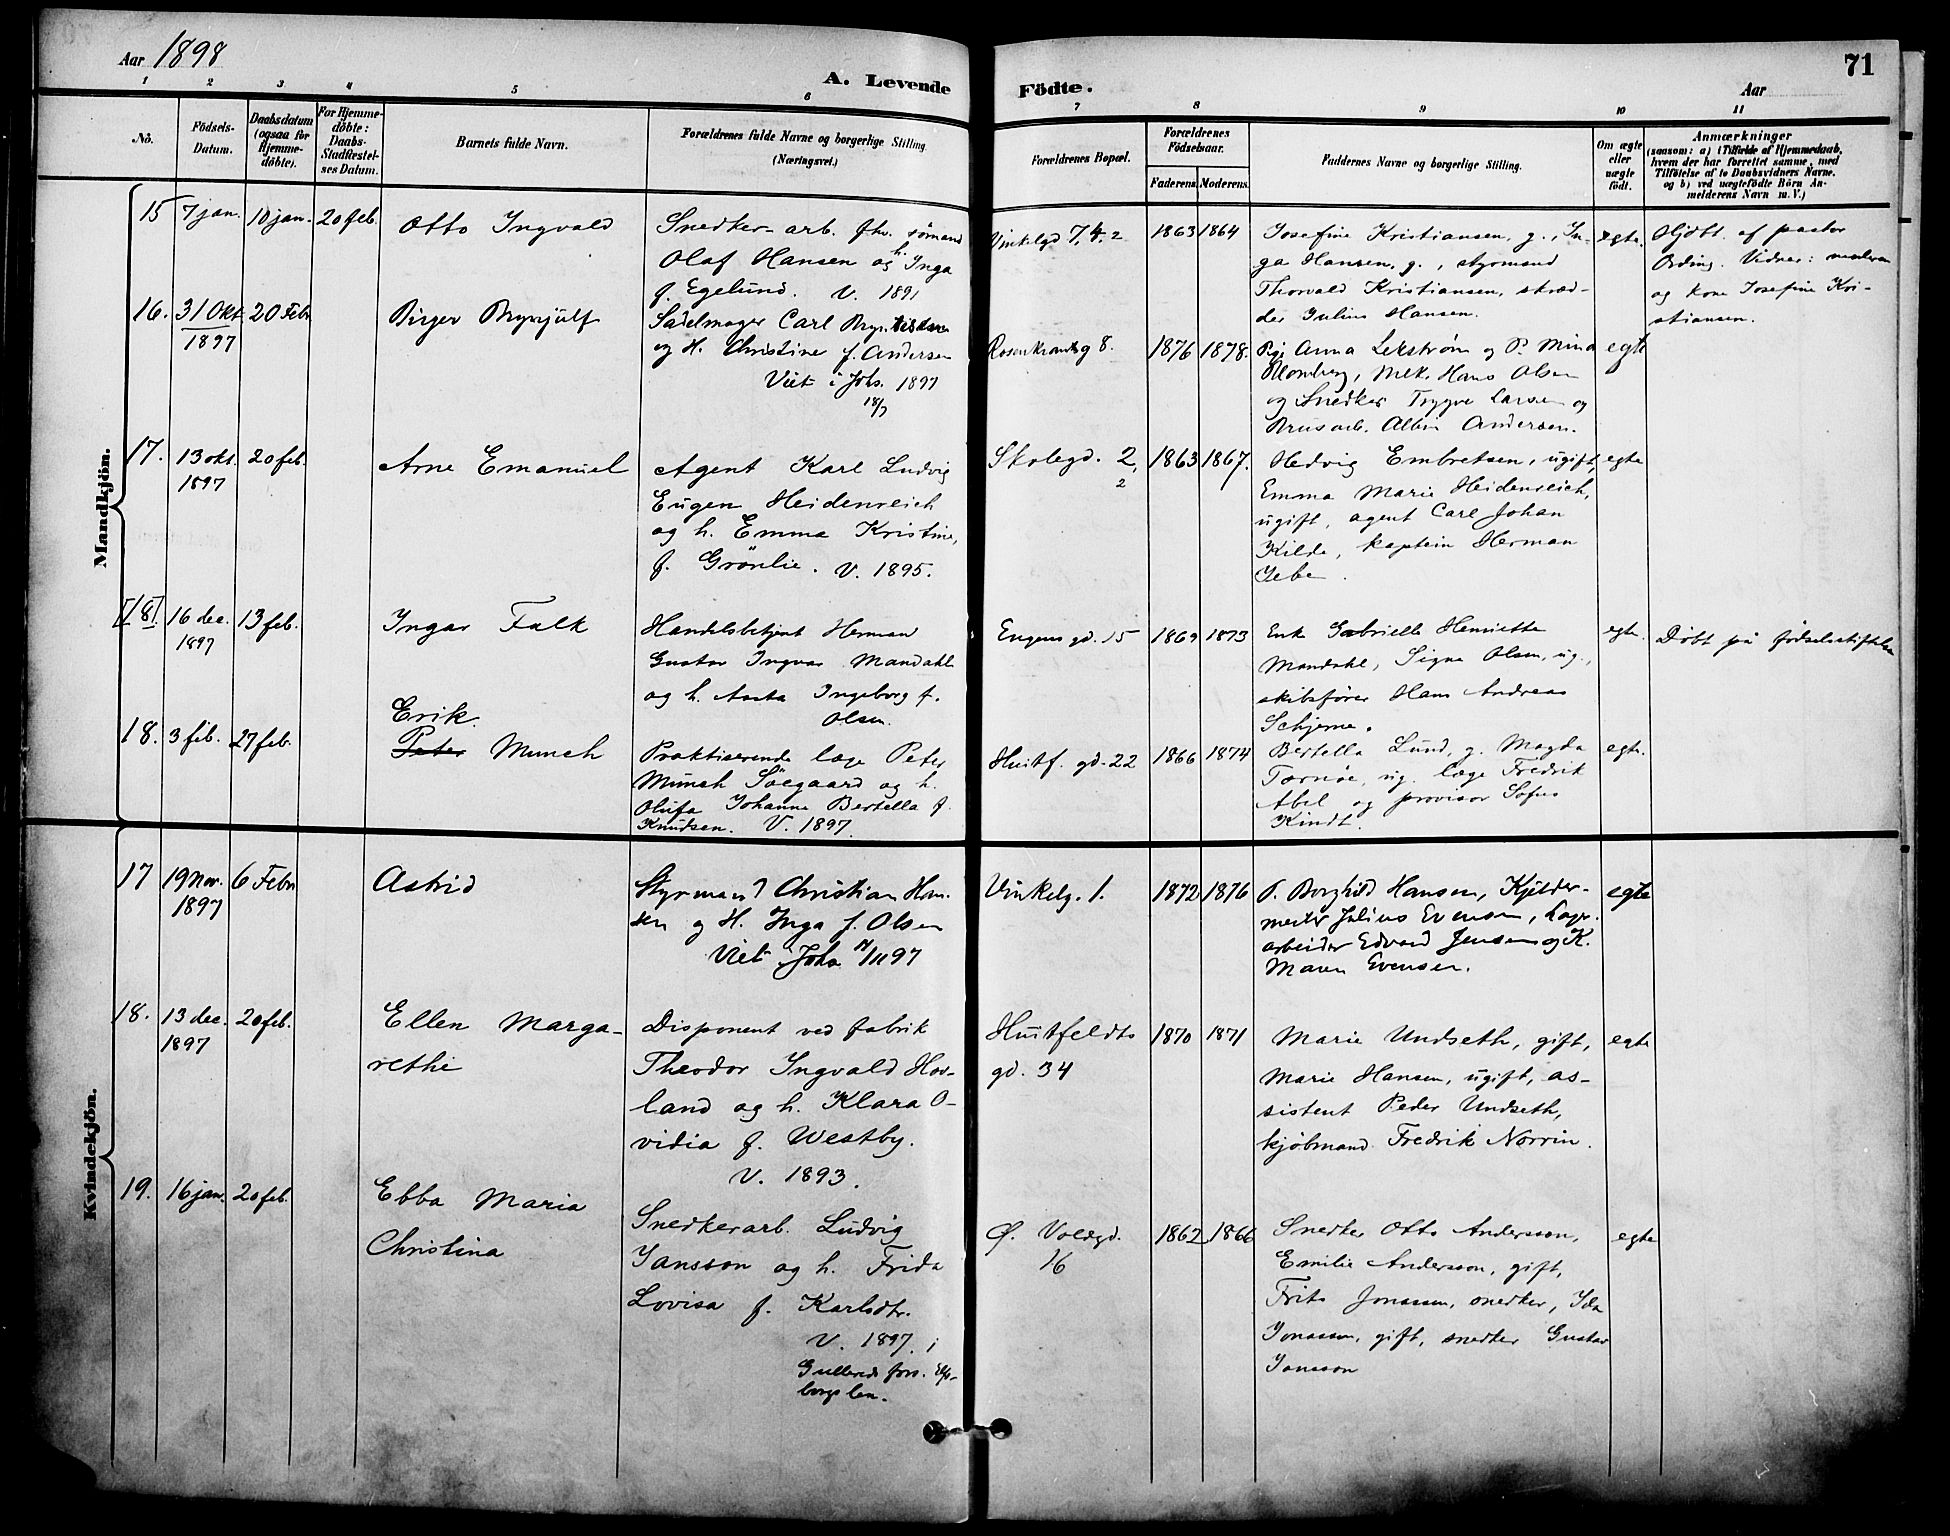 Aar 1898
A. Levende
Födte.
Aar
71
1 2 3 4 5 6 7 8 9 10 11
No.
Födsels-
Datum.
Daabsdatum
(ogsaa for
Hjemme-
döbte).
For Hjemme-
döbte:
Daabs-
Stadfæstel-
ses Datum.
Barnets fulde Navn.
Forældrenes fulde Navne og borgerlige Stilling
(Næringsvei.)
Forældrenes Bopæl.
Forældrenes
Födselsaar.
Faderens Moderens
Faddernes Navne og borgerlige Stilling.
Om ægte
eller
uægte
født.
Anmærkninger
(saasom: a) i Tilfælde af Hjemmedaab,
hvem der har forrettet samme, med
Tilføielse af to Daabsvidners Navne,
og b) ved uægtefödte Börn An-
melderens Navn m. V.)
Mandkjön.
15 7 jan. 10 jan. 20 feb.
Otto Ingvald
Snedker-arb. fhv. sømand
Olaf Hansen og h. Inga
f. Egelund. V. 1891
Vinkelgd 7, 4, 2
1863 1864
Josefine Kristiansen, g., In-
ga Hansen, g., styrmand
Thorvald Kristiansen, skræd-
der Julius Hansen.
egte.
Hjdbt. af pastor
Ording. Vidner:
og kone Josefine Kri-
stiansen.
16. 31 Okt 20 Febr
1897
Birger Brynjulf
Sadelmager Carl
og H. Christine f. Andersen
Viet i Johs. 1897
18/7
Rosenkrantzg 8.
1876 1878.
Pige Anna Lekstrøm og P. Mina
Blomberg, Mek. Hans Olsen
og Snedker Trygve Larsen og
Brusarb. Albin Andersen.
egte
17. 13 okt. 20 feb.
1897
Arne Emanuel
Agent Karl Ludvig
Eugen Heidenreich
og h. Emma Kristine,
f. Grönlie. V. 1895.
Skolegd. 2,
2
1863 1867.
Hedvig Embretsen, ugift,
Emma Marie Heidenreich,
ugift, agent Carl Johan
Kilde, kaptein Herman
Jebe.
egte
[18] 16 dec. 13 feb.
1897
Ingar Falk
Handelsbetjent Herman
Gustav Ingvar Mandahl
og h. Aasta Ingeborg f.
Olsen.
Eugens gd. 15
1869 1873
Enke Gabrielle Henriette
Mandahl, Signe Olsen, ug.,
skibsfører Hans Andreas
Schjerne.
egte.
Döbt på fødselsstiftelsen
18. 3 feb. 27 feb.
Erik
Peter Munch
Praktiserende læge Peter
Munch Söegaard og h.
Olufa Johanne Bertella f.
Knudsen. V. 1897.
Huitf. gd. 22
1866 1874
Bertella Lund, g. Magda
Tornöe, ug. læge Fredrik
Abel og provisor Sofus
Kindt.
egte.
Kvindekjön.
17 19 Nov. 6 Febr
1897
Astrid
Styrmand Christian Han-
sen og H. Inga f. Olsen
Viet i Johs 1897
Vinkelg. 1.
1872 1876
P. Borghild Hansen, Kjelder-
mester Julius Evensen, Lager-
arbeider Edvard Jensen og K.
Maren Evensen.
egte
18. 13 dec. 20 feb.
1897
Ellen Marga-
rethe
Disponent ved fabrik
Theodor Ingvald Hov-
land og h. Klara O-
vidia f. Westby.
V. 1893.
Huitfeldts
gd. 34
1870 1871
Marie Undseth, gift,
Marie Hansen, ugift, as-
sistent Peder Undseth,
kjöbmand Fredrik Norrin.
egte
19. 16 jan. 20 feb.
Ebba Maria
Christina
Snedkerarb. Ludvig
Jansson og h. Frida
Lovisa f. Karlsdtr.
V. 1897. i
Gullereds fors. Elfs-
borgs len.
Ø. Voldgd.
16
1862 1866
Snedker Otto Andersson,
Emilie Andersson, gift,
Frits Jonassen, snedker, Ida
Jonassen, gift, snedker Gustav
Jansson
egte